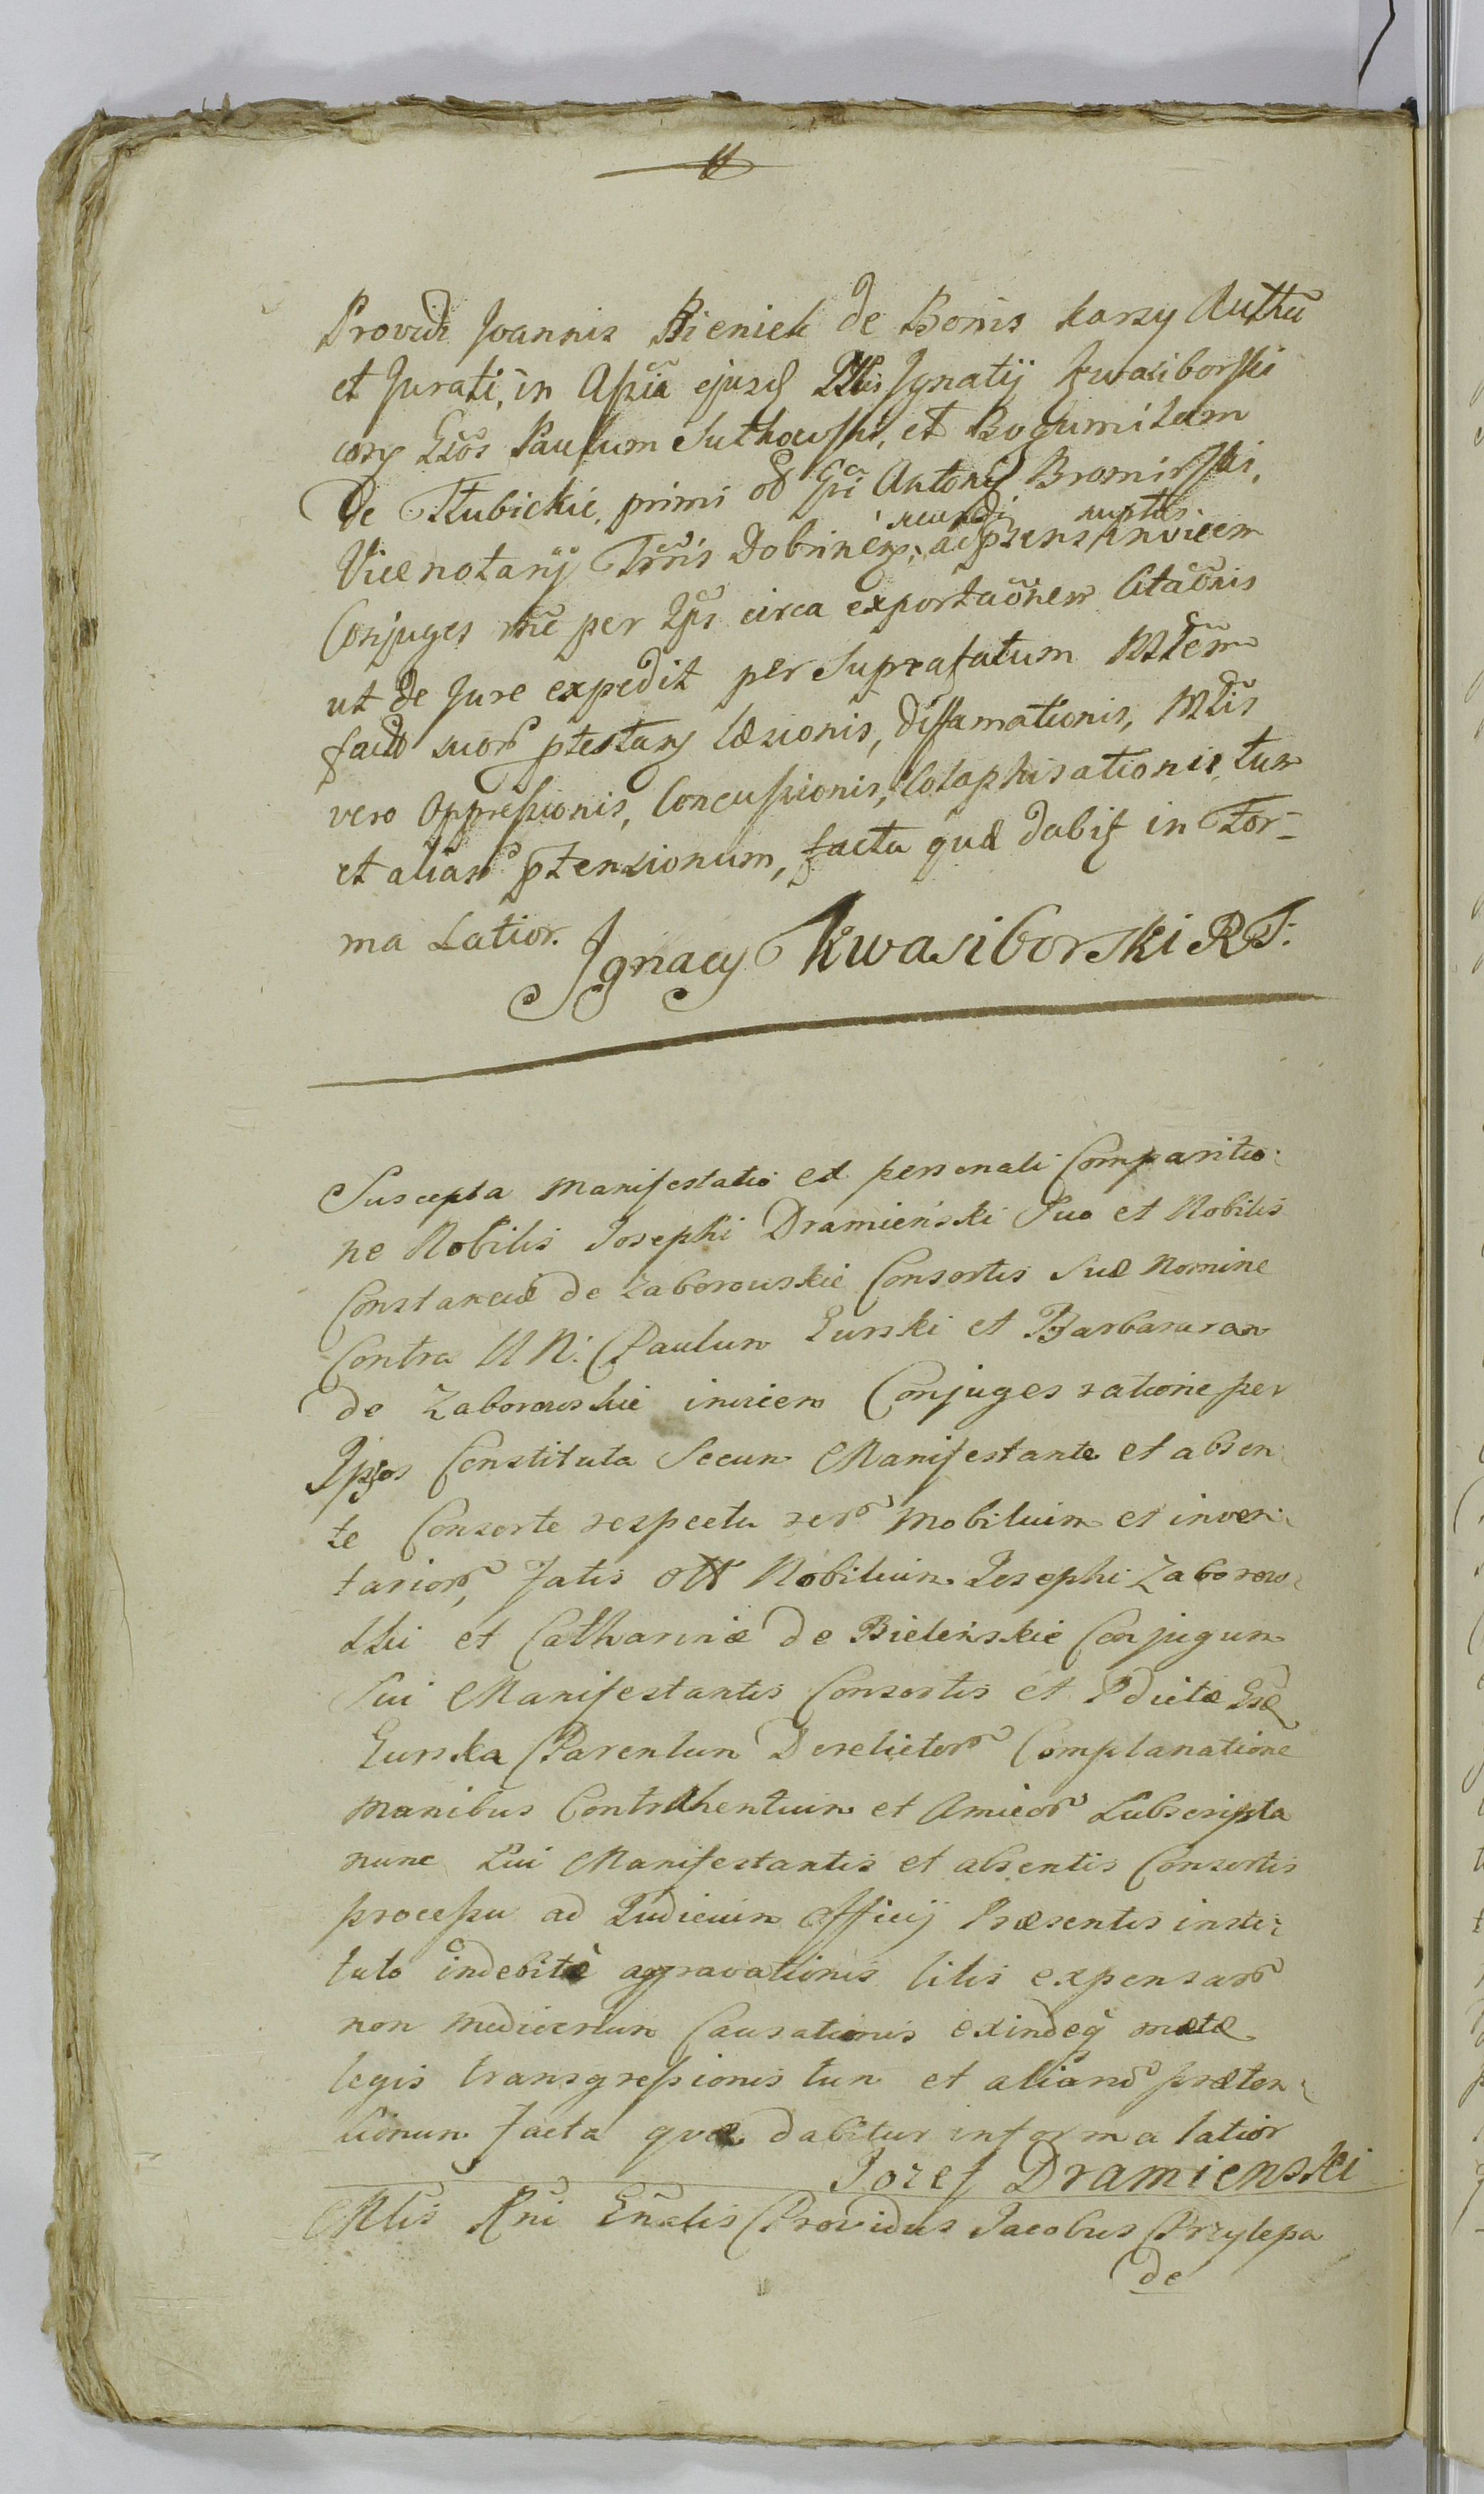 Providi Joannis Bieniek de Bonis Karsy Auth̃u
et Jurati, in Assĩa ejusd Mtlis Ignatij Kwasiborski
corg Gsõs Paulum Sutkowski, et Bogumilam
de Kłubickie, primi ol Gsi Antonij Bromirski,
Vicenotarij Trr̃is Dobrinen, secundi nuptus
ad psens invicem
Conjuges rñe per Ips circa exportaõnem Citaõnis
ut de Jure expedit per Suprafatum Mtlem
facto suoȓ ptestarg læsionis, diffamationis, Mtlis
vero Oppressionis, Concussionis, Colaphisationis, tum
et aliaȓ ptensionum, facta quæ dabit in For-
ma Latior.
Ignacy Kwasiborski RT:
Suscepta Manifestatio ex personali Comparitio-
ne Nobilis Josephi Dramieński Suo et Nobilis
Constanciæ de Zaborowskie Consortis Suæ Nomine
Contra NN: Paulum Gurski et Barbaram
de Zaborowskie invicem Conjuges ratione per
Ipsos Constituta Secum Manifestante et absen-
te Consorte respectu reȓ Mobilium et inven-
tarioȓ, fatis olt Nobilium Josephi Zaborow-
ski et Catharinæ de Bieleńskie Conjugum
Sui Manifestantis Consortis et Pdictæ Gsæ
Gurska Parentum Derelictoȓ Complanatione
Manibus Contrahentium et Amicoȓ Subscripta
nunc Sui Manifestantis et absentis Consortis
processu ad Judicium Officij Præsentis insti-
tuto indebitè aggravationis litis expensaȓ
non mediocrium Causationis exindeq̃ motæ
legis transgressionis tum et aliarȓ præten-
sionum facta quæ dabitur in forma latior
Jozef Dramienski
Mtlis Rñi Gñalis Providus Jacobus Przylepa
de